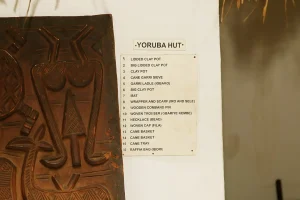 -YORUBA HUT-
1 LIDDED CLAY POT
2 BIG LIDDED CLAY POT
3 CLAY POT
4 CANE GARRI SIEVE
5
6 BIG CLAY POT
7 MAT
8 WRAPPER AND SCARF (IRO AND GELE)
9 WOODEN
10 WOVEN TROUSER
11 NECKLACE (BEAD)
12 WOVEN CAP (FILA)
13 CANE BASKET
14 CANE BASKET
15 CANE TRAY
16 RAFFIA BAG